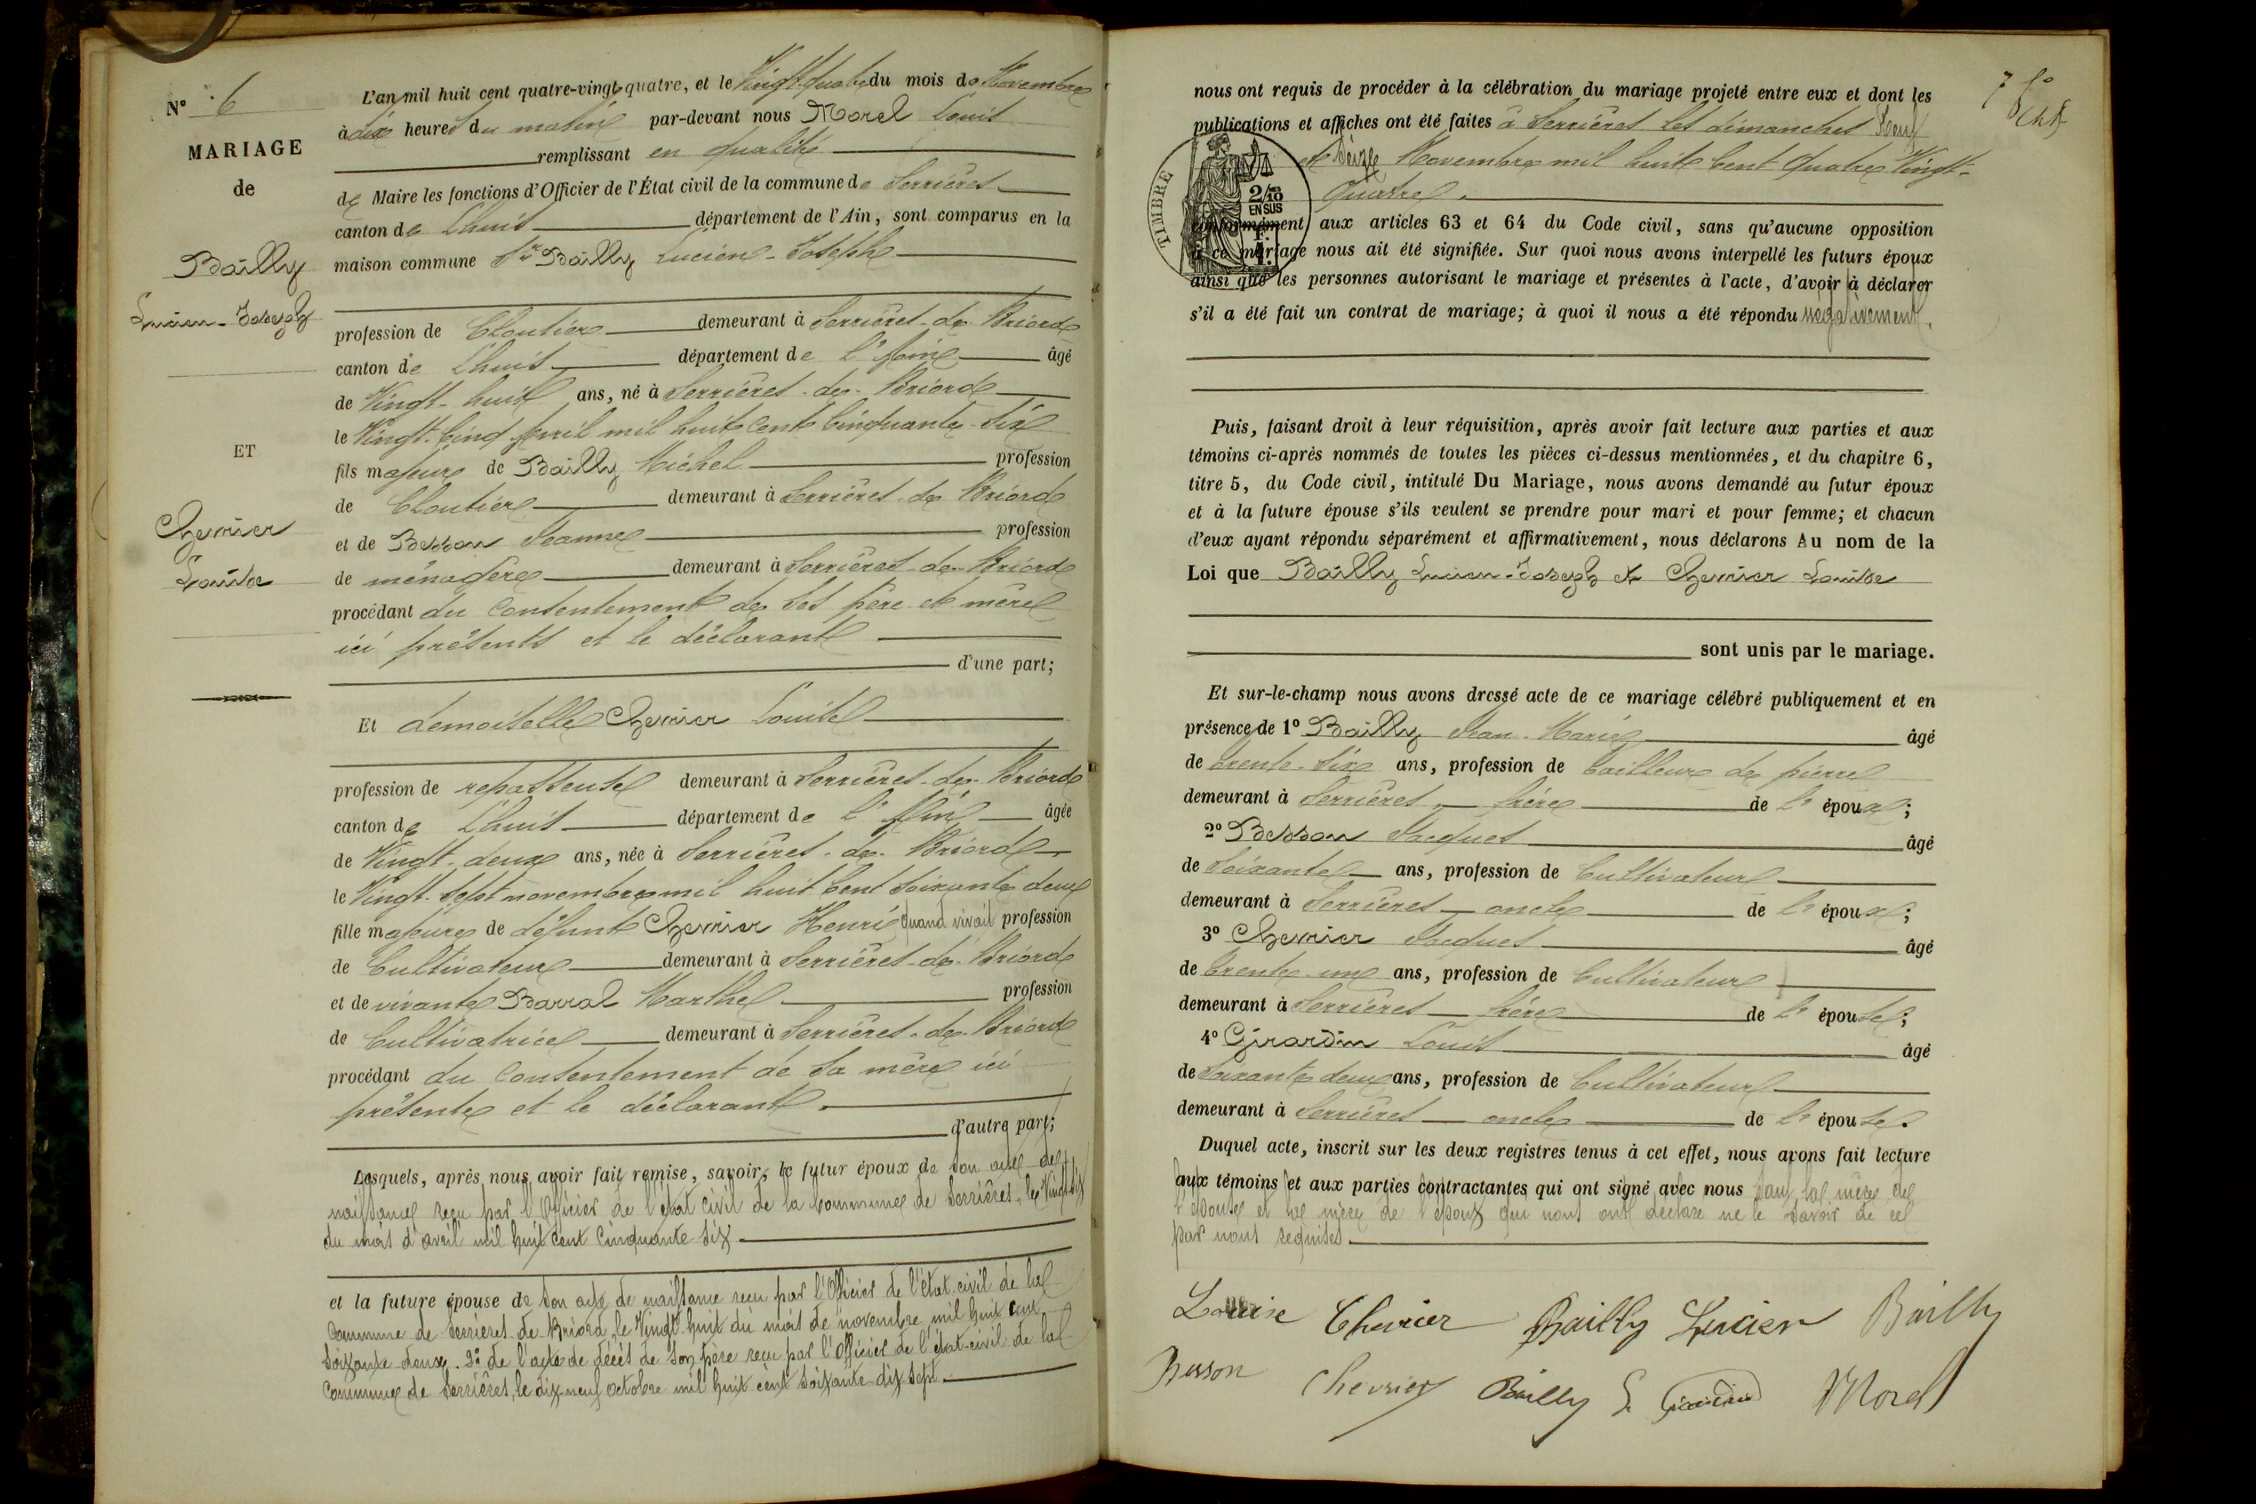 N° 6
MARIAGE
de
Bailly
Lucien-Joseph
ET
Chevrier
Louise
L'an mil huit cent quatre-vingt quatre, et le Vingt-quatre du mois de Novembre
à dix heures du matin par-devant nous Morel Louis
remplissant en qualité
de Maire les fonctions d'Officier de l'État civil de la commune de Serrières
canton de Lhuis département de l'Ain, sont comparus en la
maison commune Sr Bailly Lucien-Joseph
profession de Cloutier demeurant à Serrières-de-Briord
canton de Lhuis département de l'Ain âgé
de Vingt-huit ans, né à Serrières-de-Briord
le Vingt-Cinq Avril mil huit Cent Cinquante-Six
fils majeur de Bailly Michel profession
de Cloutier demeurant à Serrières-de-Briord
et de Besson Jeanne profession
de ménagère demeurant à Serrières-de-Briord
procédant du Consentement de Ses père et mère
ici présents et le déclarant
d'une part;
Et demoiselle Chevrier Louise
profession de repasseuse demeurant à Serrières-de-Briord
canton de Lhuis département de l'Ain âgée
de Vingt-deux ans, née à Serrières-de-Briord
le Vingt-Sept novembre mil huit Cent Soixante deux
fille majeure de défunt Chevrier Henri quand vivait profession
de Cultivateur demeurant à Serrières-de-Briord
et de vivante Barral Marthe profession
de Cultivatrice demeurant à Serrières-de-Briord
procédant du Consentement de Sa mère ici
présente et le déclarant.
d'autre part;
Lesquels, après nous avoir fait remise, savoir, le futur époux de son acte de
naissance reçu par l'Officier de l'état civil de la Commune de Serrières, le Vingt-Six
du mois d'avril mil huit cent Cinquante Six
et la future épouse de son acte de naissance reçu par l'Officier de l'état-civil de la
Commune de Serrières-de-Briord, le Vingt huit du mois de novembre mil huit cent
Soixante deux. 2° de l'acte de décès de Son père reçu par l'Officier de l'état-civil de la
Commune de Serrières, le dix-neuf octobre mil huit cent Soixante-dix Sept.
nous ont requis de procéder à la célébration du mariage projeté entre eux et dont les
publications et affiches ont été faites à Serrières Les dimanches Neuf
et Seize Novembre mil huit Cent Quatre Vingt-
Quatre.
TIMBRE
2/10
EN SUS
F.
1.
conformément aux articles 63 et 64 du Code civil, sans qu'aucune opposition
à ce mariage nous ait été signifiée. Sur quoi nous avons interpellé les futurs époux
ainsi que les personnes autorisant le mariage et présentes à l'acte, d'avoir à déclarer
s'il a été fait un contrat de mariage; à quoi il nous a été répondu négativement.
Puis, faisant droit à leur réquisition, après avoir fait lecture aux parties et aux
témoins ci-après nommés de toutes les pièces ci-dessus mentionnées, et du chapitre 6,
titre 5, du Code civil, intitulé Du Mariage, nous avons demandé au futur époux
et à la future épouse s'ils veulent se prendre pour mari et pour femme; et chacun
d'eux ayant répondu séparément et affirmativement, nous déclarons Au nom de la
Loi que Bailly Lucien-Joseph et Chevrier Louise
sont unis par le mariage.
Et sur-le-champ nous avons dressé acte de ce mariage célébré publiquement et en
présence de 1° Bailly Jean-Marie âgé
de trente-Six ans, profession de tailleur de pierre
demeurant à Serrières frère de l'époux;
2° Besson Jacques âgé
de Soixante ans, profession de Cultivateur
demeurant à Serrières oncle de l'époux;
3° Chevrier Jacques âgé
de trente-un ans, profession de Cultivateur
demeurant à Serrières frère de l'épouse;
4° Girardin Louis âgé
de Soixante deux ans, profession de Cultivateur
demeurant à Serrières oncle de l'épouse.
Duquel acte, inscrit sur les deux registres tenus à cet effet, nous avons fait lecture
aux témoins et aux parties contractantes qui ont signé avec nous sauf la mère de
l'épouse et la mère de l'époux qui nous ont déclaré ne le savoir de ce
par nous requises.
Louise Chevrier Bailly Lucien Bailly
Besson Chevrier Bailly L. Girardin Morel